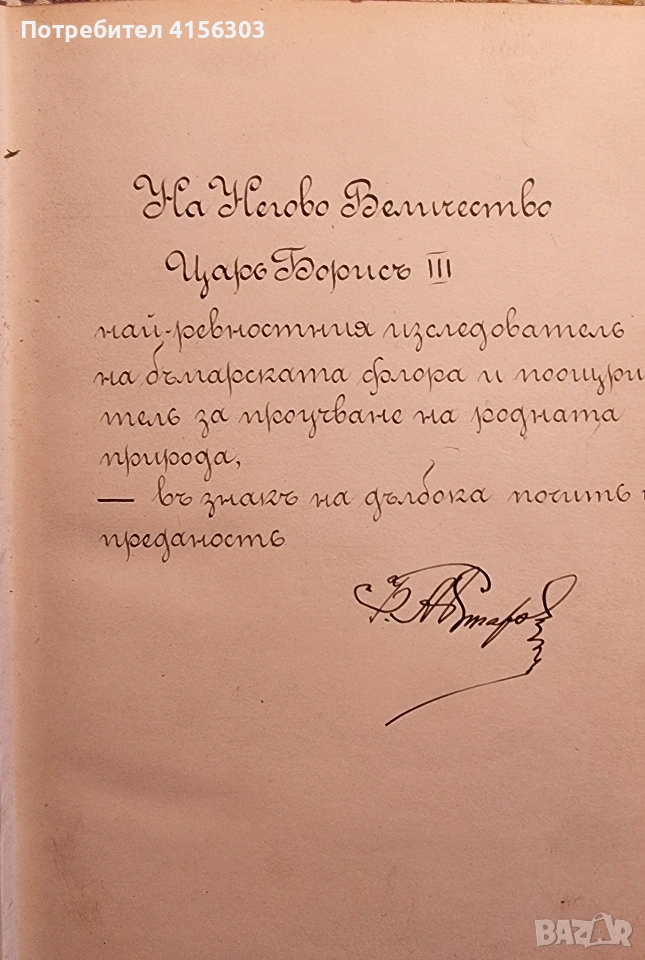 Потребител 4156303
На Негово Величество
Царь Борисъ III
най-ревностния изследователь
на българската флора и поощри
тель за проучване на родната
природа,
— въ знакъ на дълбока почить
преданость
BAZAR